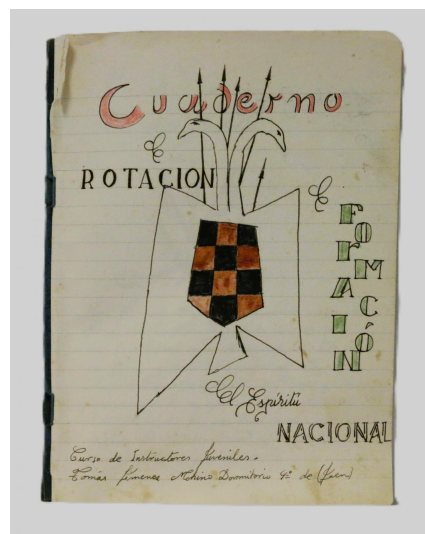 Cuaderno
de
ROTACION
de
FORMACIÓN
del Espíritu
NACIONAL
Curso de Instructores Juveniles.
Tomás Jimenez Mohino Dormitorio 4º de (Jaen)